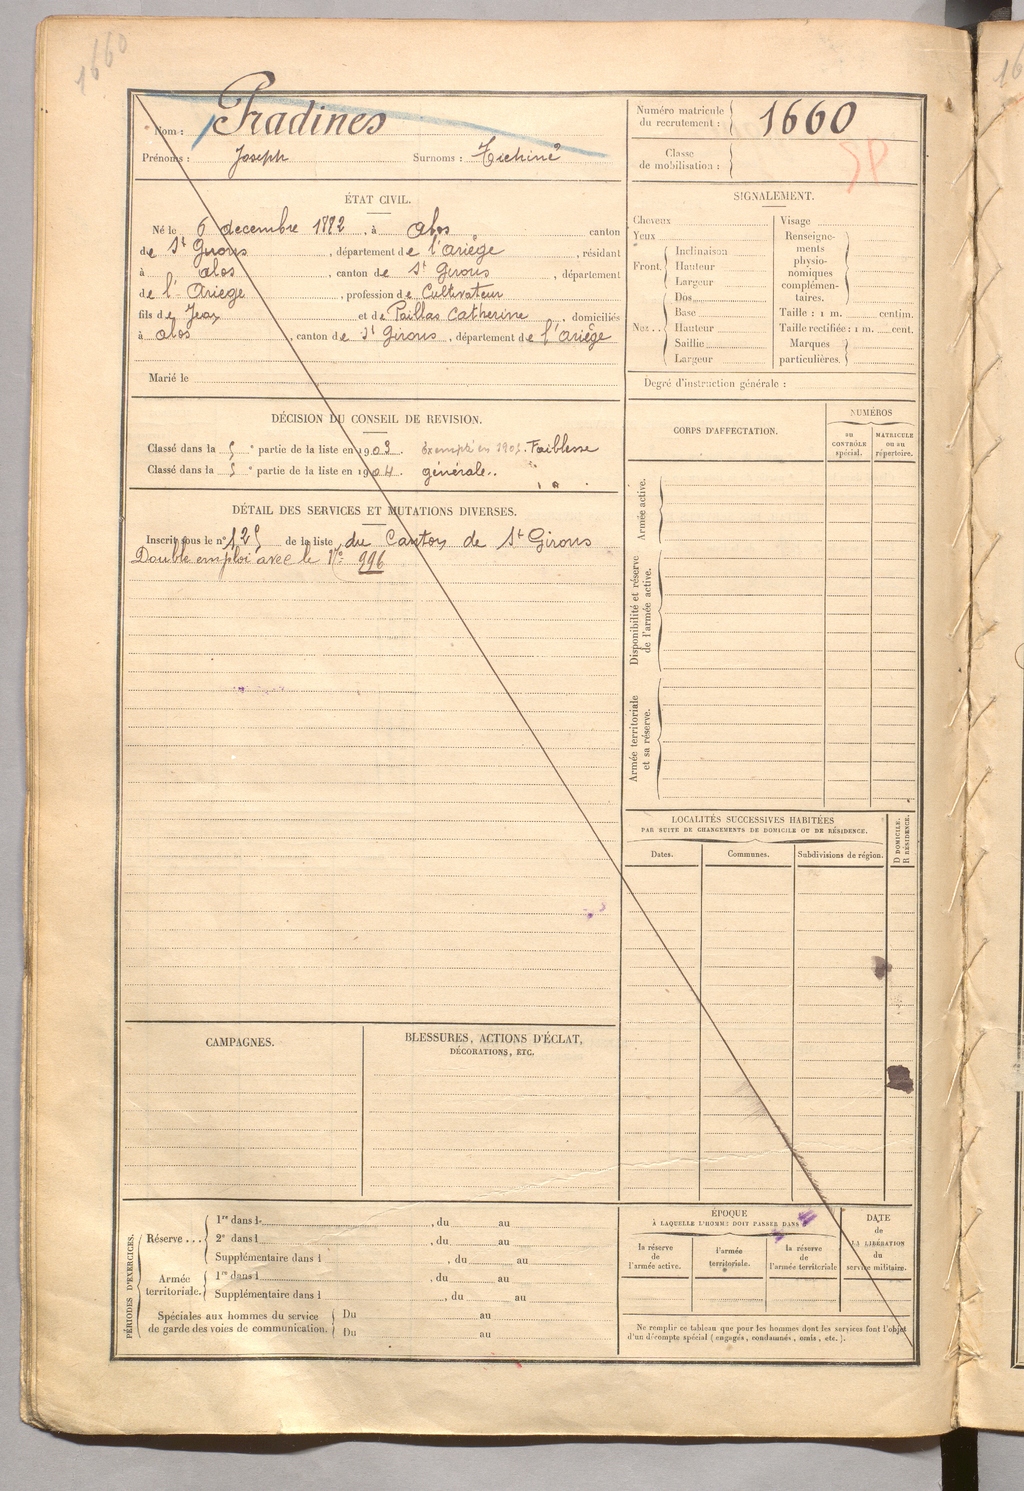 1660
Nom : Pradines
Prénoms : Joseph Surnoms : Tichiné
Numéro matricule
du recrutement : 1660
Classe
de mobilisation :
SP
ÉTAT CIVIL.
Né le 6 decembre 1882, à Alos canton
de St Girons, département de l'Ariège, résidant
à alos, canton de St Girons, département
de l'Ariège, profession de Cultivateur
fils de Jean et de Paillas Catherine, domiciliés
à alos, canton de St Girons, département de l'Ariège
Marié le
SIGNALEMENT.
Cheveux
Yeux
Front. Inclinaison
Hauteur
Largeur
Nez.. Dos
Base
Hauteur
Saillie
Largeur
Visage
Renseigne-
ments
physio-
nomiques
complémen-
taires.
Taille : 1 m. centim.
Taille rectifiée : 1 m. cent.
Marques
particulières.
Degré d'instruction générale :
DÉCISION DU CONSEIL DE REVISION.
Classé dans la 5e partie de la liste en 1903. Exempté en 1905. Faiblesse
Classé dans la 5e partie de la liste en 1904. générale..
DÉTAIL DES SERVICES ET MUTATIONS DIVERSES.
Inscrit sous le n° 125 de la liste du Canton de St Girons
Double emploi avec le N° 996
CORPS D'AFFECTATION.
NUMÉROS
au
CONTRÔLE
spécial.
MATRICULE
ou au
répertoire.
Armée active.
Disponibilité et réserve
de l'armée active.
Armée territoriale
et sa réserve.
LOCALITÉS SUCCESSIVES HABITÉES
PAR SUITE DE CHANGEMENTS DE DOMICILE OU DE RÉSIDENCE.
D DOMICILE.
R RÉSIDENCE.
Dates. Communes. Subdivisions de région.
CAMPAGNES.
BLESSURES, ACTIONS D'ÉCLAT,
DÉCORATIONS, ETC.
PÉRIODES D'EXERCICES.
Réserve... 1re dans l , du au
2e dans l , du au
Supplémentaire dans l , du au
Armée
territoriale. 1re dans l , du au
Supplémentaire dans l , du au
Spéciales aux hommes du service
de garde des voies de communication. Du au
Du au
ÉPOQUE
À LAQUELLE L'HOMME DOIT PASSER DANS
la réserve
de
l'armée active.
l'armée
territoriale.
la réserve
de
l'armée territoriale
DATE
de
LA LIBÉRATION
du
service militaire.
Ne remplir ce tableau que pour les hommes dont les services font l'objet
d'un décompte spécial (engagés, condamnés, omis, etc.).